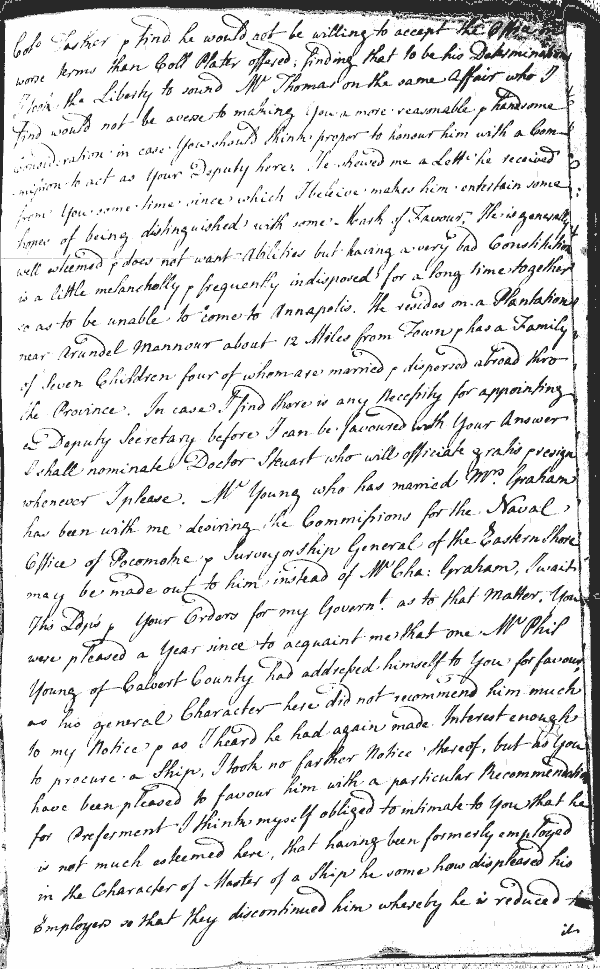 Colo. Tasker & find he would not be willing to accept the Office on
worse terms than Coll Plater offered; finding that to be his Determination
I took the Liberty to sound Mr Thomas on the same Affair who I
find would not be averse to making You a more reasonable & handsome
Consideration in case You should think proper to honour him with a Com-
mission to act as Your Deputy here. He shewed me a Lettr. he received
from You some time since which I beleive makes him entertain some
hopes of being distinguished with some Mark of Favour, He is generally
well esteemed & does not want Abilities but having a very bad Constitution
is a little melancholly & frequently indisposed for a long time together
so as to be unable to come to Annapolis. He resides on a Plantation
near Arundel Mannour about 12 Miles from Town & has a Family
of Seven Children four of whom are married & dispersed abroad thro
the Province. In case I find there is any Necessity for appointing
a Deputy Secretary before I can be favoured with Your Answer
I shall nominate Doctor Steuart who will officiate gratis & resign
whenever I please. Mr Young who has married Mrs Graham
has been with me desiring the Commissions for the Naval
Office of Pocomoke & Surveyorship General of the Eastern Shore
may be made out to him instead of Mr Cha: Graham, I wait
His Ldp's & Your Orders for my Governt. as to that Matter. You
were pleased a Year since to acquaint me that one Mr Phil
Young of Calvert County had addressed himself to You for favour
as his general Character here did not recommend him much
to my Notice & as I heard he had again made Interest enough
to procure a Ship, I took no farther Notice thereof, but as You
have been pleased to favour him with a particular Recommendation
for Preferment I think myself obliged to intimate to You that he
is not much esteemed here, that having been formerly employed
in the Character of Master of a Ship he some how displeased his
Employers so that they discontinued him whereby he is reduced to